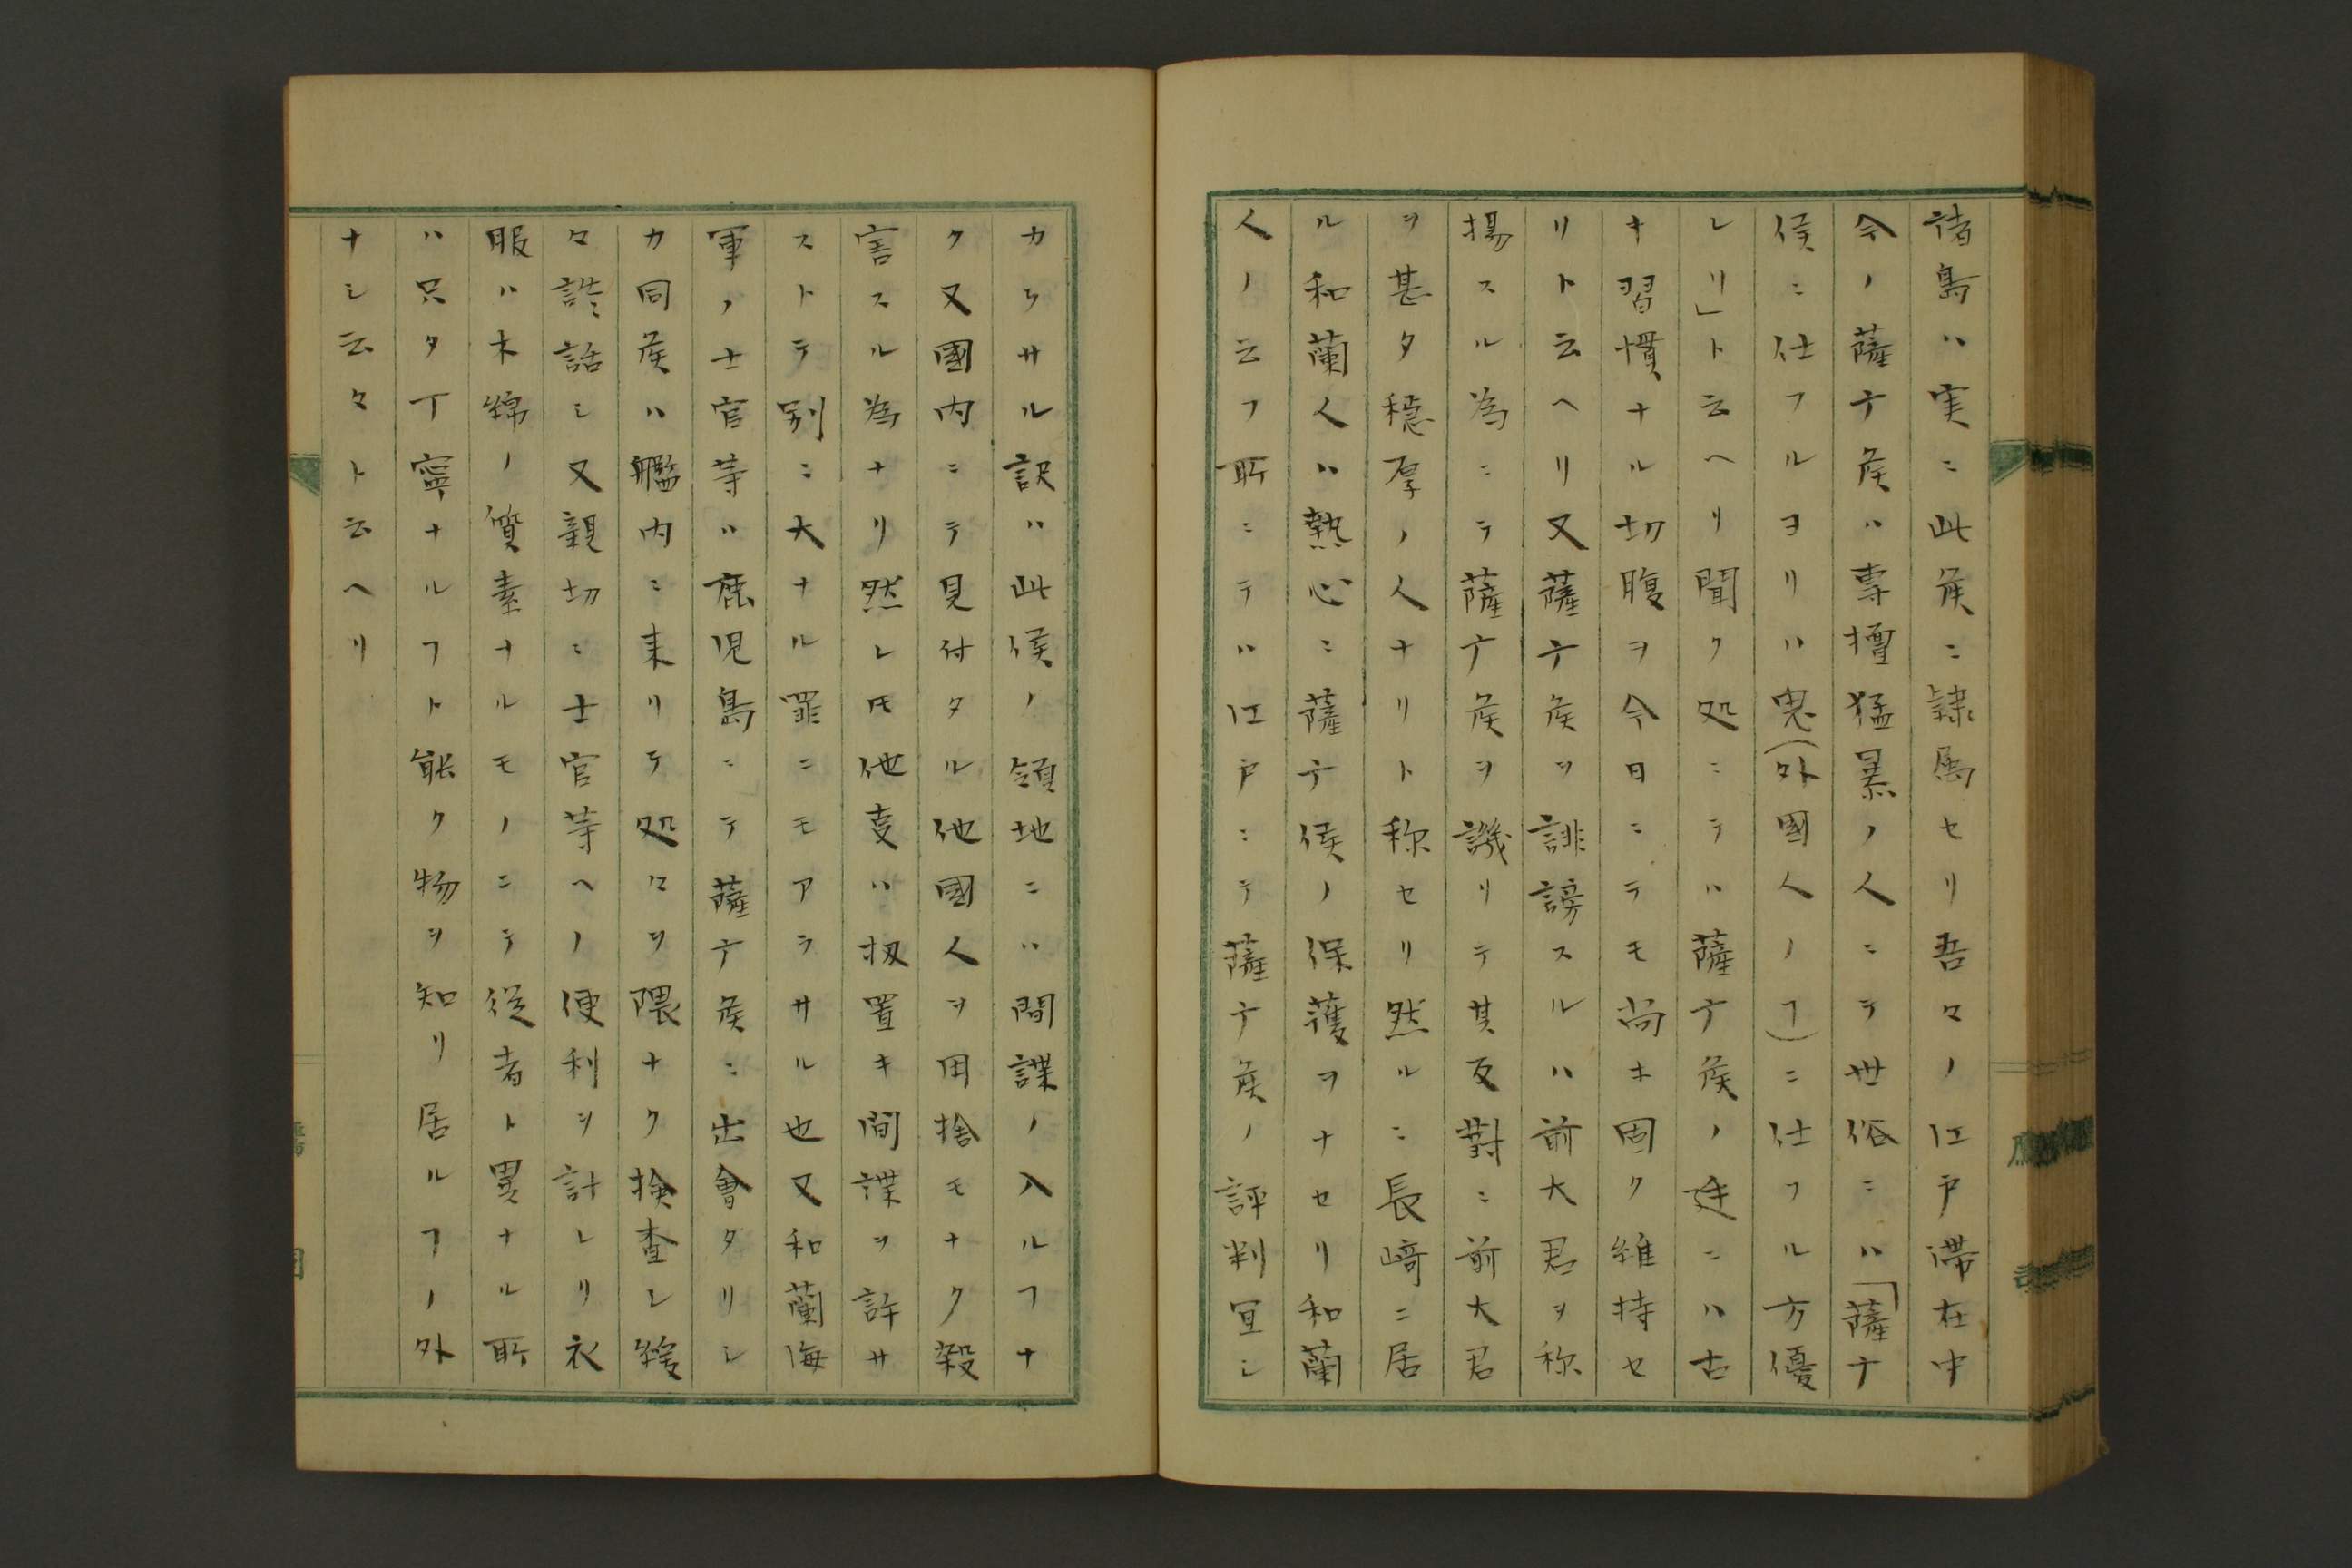 諸島ハ実ニ此侯ニ隷属セリ吾々ノ江戸滞在中
今ノ薩ナ侯ハ専擅猛暴ノ人ニテ世俗ニハ「薩ナ
侯ニ仕フルヨリハ鬼(外國人ノヿ)ニ仕フル方優
レリ」ト云ヘリ聞ク処ニテハ薩ナ侯ノ廷ニハ古
キ習慣ナル切腹ヲ今日ニテモ尚ホ固ク維持セ
リト云ヘリ又薩ナ侯ヲ誹謗スルハ前大君ヲ称
揚スル為ニテ薩ナ侯ヲ譏リテ其反對ニ前大君
ヲ甚タ穏厚ノ人ナリト称セリ然ルニ長﨑ニ居
ル和蘭人ハ熱心ニ薩ナ侯ノ保護ヲナセリ和蘭
人ノ云フ所ニテハ江戸ニテ薩ナ侯ノ評判宜シ
カラサル訳ハ此侯ノ領地ニハ間諜ノ入ルヿナ
ク又國内ニテ見付タル他國人ヲ用捨モナク殺
害スル為ナリ然レ𪜈他㕝ハ扨置キ間諜ヲ許サ
ストテ別ニ大ナル罪ニモアラサル也又和蘭海
軍ノ士官等ハ鹿児島ニテ薩ナ侯ニ出會タリシ
カ同侯ハ艦内ニ来リテ処々ヲ隈ナク検査シ緩
々談話シ又親切ニ士官等ヘノ便利ヲ計レリ衣
服ハ木綿ノ質素ナルモノニテ従者ト異ナル所
ハ只タ丁寧ナルヿト能ク物ヲ知リ居ルヿノ外
ナシ云々ト云ヘリ